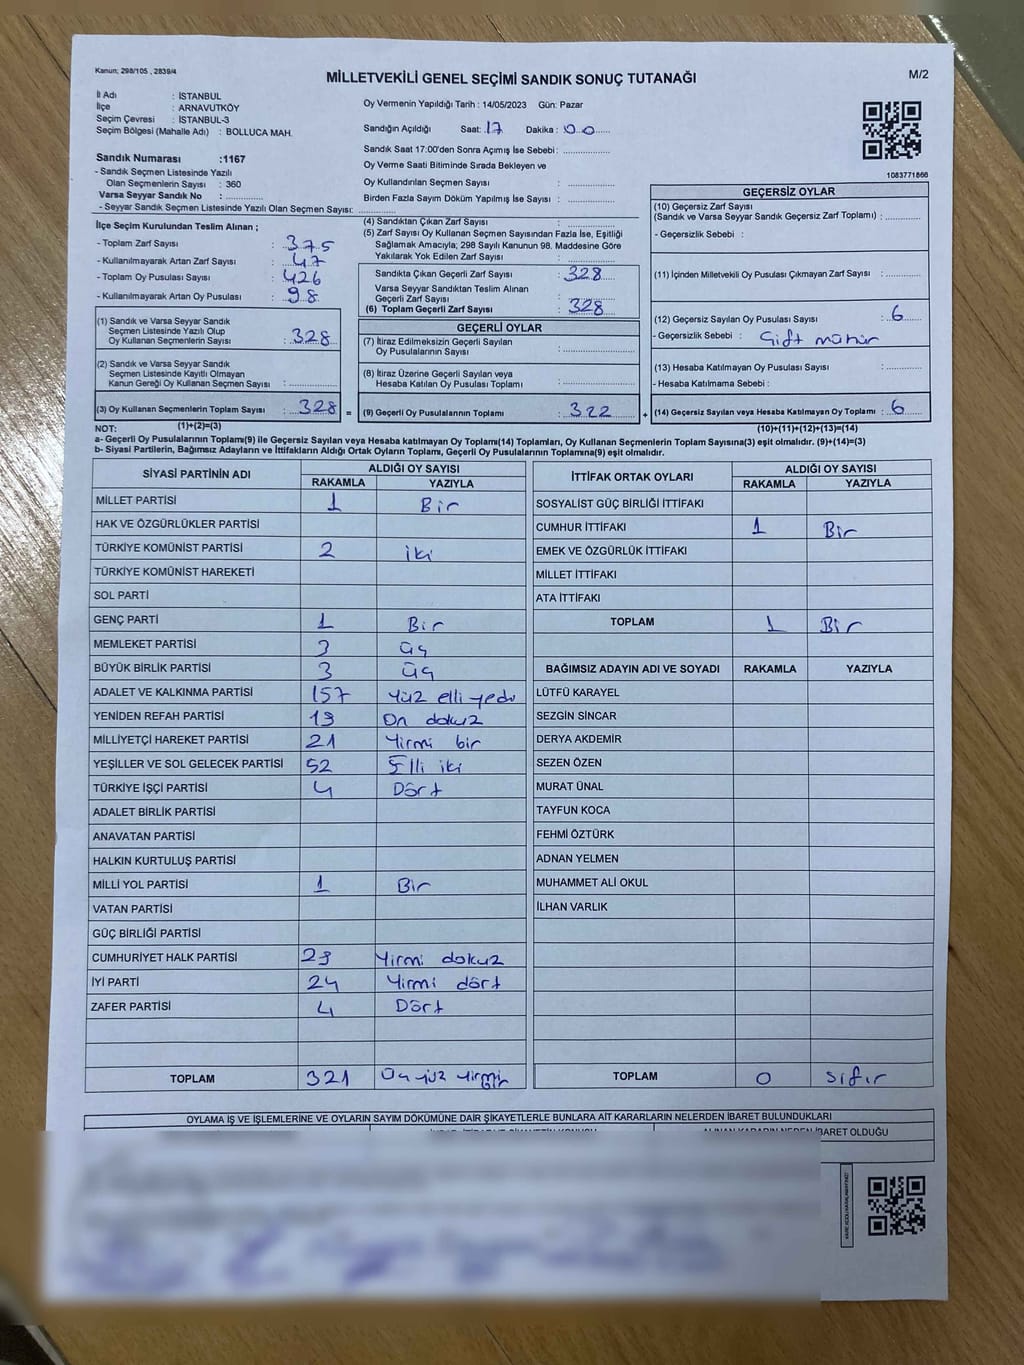 Kanun: 298/105 , 2839/4
MİLLETVEKİLİ GENEL SEÇİMİ SANDIK SONUÇ TUTANAĞI
M/2
İl Adı : İSTANBUL
İlçe : ARNAVUTKÖY
Seçim Çevresi : İSTANBUL-3
Seçim Bölgesi (Mahalle Adı) : BOLLUCA MAH.
Sandık Numarası :1167
- Sandık Seçmen Listesinde Yazılı
Olan Seçmenlerin Sayısı : 360
Varsa Seyyar Sandık No : ..............
- Seyyar Sandık Seçmen Listesinde Yazılı Olan Seçmen Sayısı: ..............
Oy Vermenin Yapıldığı Tarih : 14/05/2023 Gün: Pazar
Sandığın Açıldığı Saat: 17 Dakika : 00
Sandık Saat 17:00'den Sonra Açımış İse Sebebi : ..............
Oy Verme Saati Bitiminde Sırada Bekleyen ve
Oy Kullandırılan Seçmen Sayısı : ..............
Birden Fazla Sayım Döküm Yapılmış İse Sayısı : ..............
1083771866
İlçe Seçim Kurulundan Teslim Alınan ;
- Toplam Zarf Sayısı : 375
- Kullanılmayarak Artan Zarf Sayısı : 47
- Toplam Oy Pusulası Sayısı : 426
- Kullanılmayarak Artan Oy Pusulası : 98
(1) Sandık ve Varsa Seyyar Sandık
Seçmen Listesinde Yazılı Olup
Oy Kullanan Seçmenlerin Sayısı : 328
(2) Sandık ve Varsa Seyyar Sandık
Seçmen Listesinde Kayıtlı Olmayan
Kanun Gereği Oy Kullanan Seçmen Sayısı : ..............
(3) Oy Kullanan Seçmenlerin Toplam Sayısı : 328 =
(1)+(2)=(3)
(4) Sandıktan Çıkan Zarf Sayısı : ..............
(5) Zarf Sayısı Oy Kullanan Seçmen Sayısından Fazla İse, Eşitliği
Sağlamak Amacıyla; 298 Sayılı Kanunun 98. Maddesine Göre
Yakılarak Yok Edilen Zarf Sayısı : ..............
Sandıkta Çıkan Geçerli Zarf Sayısı : 328
Varsa Seyyar Sandıktan Teslim Alınan
Geçerli Zarf Sayısı : ..............
(6) Toplam Geçerli Zarf Sayısı : 328
GEÇERLİ OYLAR
(7) İtiraz Edilmeksizin Geçerli Sayılan
Oy Pusulalarının Sayısı : ..............
(8) İtiraz Üzerine Geçerli Sayılan veya
Hesaba Katılan Oy Pusulası Toplamı : ..............
(9) Geçerli Oy Pusulalarının Toplamı : 322 +
GEÇERSİZ OYLAR
(10) Geçersiz Zarf Sayısı
(Sandık ve Varsa Seyyar Sandık Geçersiz Zarf Toplamı) : ..............
- Geçersizlik Sebebi :
(11) İçinden Milletvekili Oy Pusulası Çıkmayan Zarf Sayısı : ..............
(12) Geçersiz Sayılan Oy Pusulası Sayısı : 6
- Geçersizlik Sebebi : Çift mühür
(13) Hesaba Katılmayan Oy Pusulası Sayısı : ..............
- Hesaba Katılmama Sebebi :
(14) Geçersiz Sayılan veya Hesaba Katılmayan Oy Toplamı : 6
(10)+(11)+(12)+(13)=(14)
NOT:
a- Geçerli Oy Pusulalarının Toplamı(9) ile Geçersiz Sayılan veya Hesaba katılmayan Oy Toplamı(14) Toplamları, Oy Kullanan Seçmenlerin Toplam Sayısına(3) eşit olmalıdır. (9)+(14)=(3)
b- Siyasi Partilerin, Bağımsız Adayların ve İttifakların Aldığı Ortak Oyların Toplamı, Geçerli Oy Pusulalarının Toplamına(9) eşit olmalıdır.
SİYASİ PARTİNİN ADI ALDIĞI OY SAYISI
RAKAMLA YAZIYLA
MİLLET PARTİSİ 1 Bir
HAK VE ÖZGÜRLÜKLER PARTİSİ
TÜRKİYE KOMÜNİST PARTİSİ 2 iki
TÜRKİYE KOMÜNİST HAREKETİ
SOL PARTİ
GENÇ PARTİ 1 Bir
MEMLEKET PARTİSİ 3 üç
BÜYÜK BİRLİK PARTİSİ 3 üç
ADALET VE KALKINMA PARTİSİ 157 Yüz elli yedi
YENİDEN REFAH PARTİSİ 19 On dokuz
MİLLİYETÇİ HAREKET PARTİSİ 21 Yirmi bir
YEŞİLLER VE SOL GELECEK PARTİSİ 52 Elli iki
TÜRKİYE İŞÇİ PARTİSİ 4 Dört
ADALET BİRLİK PARTİSİ
ANAVATAN PARTİSİ
HALKIN KURTULUŞ PARTİSİ
MİLLİ YOL PARTİSİ 1 Bir
VATAN PARTİSİ
GÜÇ BİRLİĞİ PARTİSİ
CUMHURİYET HALK PARTİSİ 29 Yirmi dokuz
İYİ PARTİ 24 Yirmi dört
ZAFER PARTİSİ 4 Dört
TOPLAM 321 Üç yüz yirmi bir
İTTİFAK ORTAK OYLARI ALDIĞI OY SAYISI
RAKAMLA YAZIYLA
SOSYALİST GÜÇ BİRLİĞİ İTTİFAKI
CUMHUR İTTİFAKI 1 Bir
EMEK VE ÖZGÜRLÜK İTTİFAKI
MİLLET İTTİFAKI
ATA İTTİFAKI
TOPLAM 1 Bir
BAĞIMSIZ ADAYIN ADI VE SOYADI RAKAMLA YAZIYLA
LÜTFÜ KARAYEL
SEZGİN SİNCAR
DERYA AKDEMİR
SEZEN ÖZEN
MURAT ÜNAL
TAYFUN KOCA
FEHMİ ÖZTÜRK
ADNAN YELMEN
MUHAMMET ALİ OKUL
İLHAN VARLIK
TOPLAM 0 Sıfır
OYLAMA İŞ VE İŞLEMLERİNE VE OYLARIN SAYIM DÖKÜMÜNE DAİR ŞİKAYETLERLE BUNLARA AİT KARARLARIN NELERDEN İBARET BULUNDUKLARI
ALINAN KARARIN NEDEN İBARET OLDUĞU